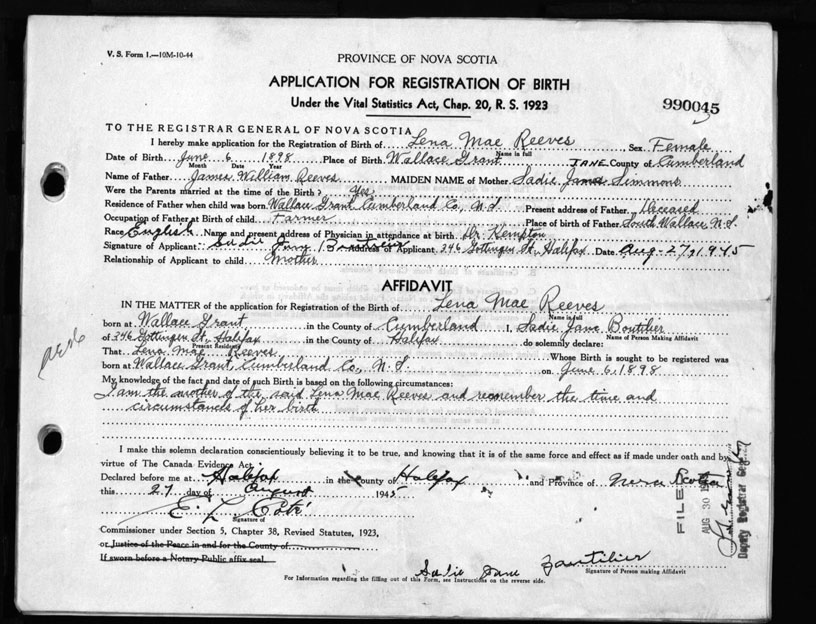 V. S. Form 1.—10M-10-44
PROVINCE OF NOVA SCOTIA
APPLICATION FOR REGISTRATION OF BIRTH
Under the Vital Statistics Act, Chap. 20, R. S. 1923
990045
TO THE REGISTRAR GENERAL OF NOVA SCOTIA
I hereby make application for the Registration of Birth of Lena Mae Reeves Sex Female
Name in full
Date of Birth June 6 1898 Place of Birth Wallace Grant County of Cumberland
Month Date Year
JANE
Name of Father James William Reeves MAIDEN NAME of Mother Sadie James Simmons
Were the Parents married at the time of the Birth? Yes
Residence of Father when child was born Wallace Grant Cumberland Co, N.S Present address of Father Deceased
Occupation of Father at Birth of child Farmer Place of birth of Father South Wallace N.S
Race English Name and present address of Physician in attendance at birth Dr. Kempton
Signature of Applicant Sadie Jane Boutilier Address of Applicant 246 Gottingen St, Halifax Date Aug-27, 1945
Relationship of Applicant to child Mother
AFFIDAVIT
IN THE MATTER of the application for Registration of the Birth of Lena Mae Reeves
Name in full
born at Wallace Grant in the County of Cumberland I, Sadie Jane Boutilier
Name of Person Making Affidavit
of 246 Gottingen St, Halifax in the County of Halifax do solemnly declare:
Present Residence
That Lena Mae Reeves Whose Birth is sought to be registered was
born at Wallace Grant, Cumberland Co, N.S. on June 6, 1898
My knowledge of the fact and date of such Birth is based on the following circumstances:
I am the mother of the said Lena Mae Reeves and remember the time and
circumstances of her birth
I make this solemn declaration conscientiously believing it to be true, and knowing that it is of the same force and effect as if made under oath and by
virtue of The Canada Evidence Act.
Declared before me at Halifax in the County of Halifax and Province of Nova Scotia
this 27 day of August 1945
E. L. Coté
Signature of
Commissioner under Section 5, Chapter 38, Revised Statutes, 1923,
or Justice of the Peace in and for the County of
If sworn before a Notary Public affix seal.
Sadie Jane Boutilier
Signature of Person making Affidavit
For Information regarding the filling out of this Form, see Instructions on the reverse side.
FILED
AUG 30
Deputy Registrar General